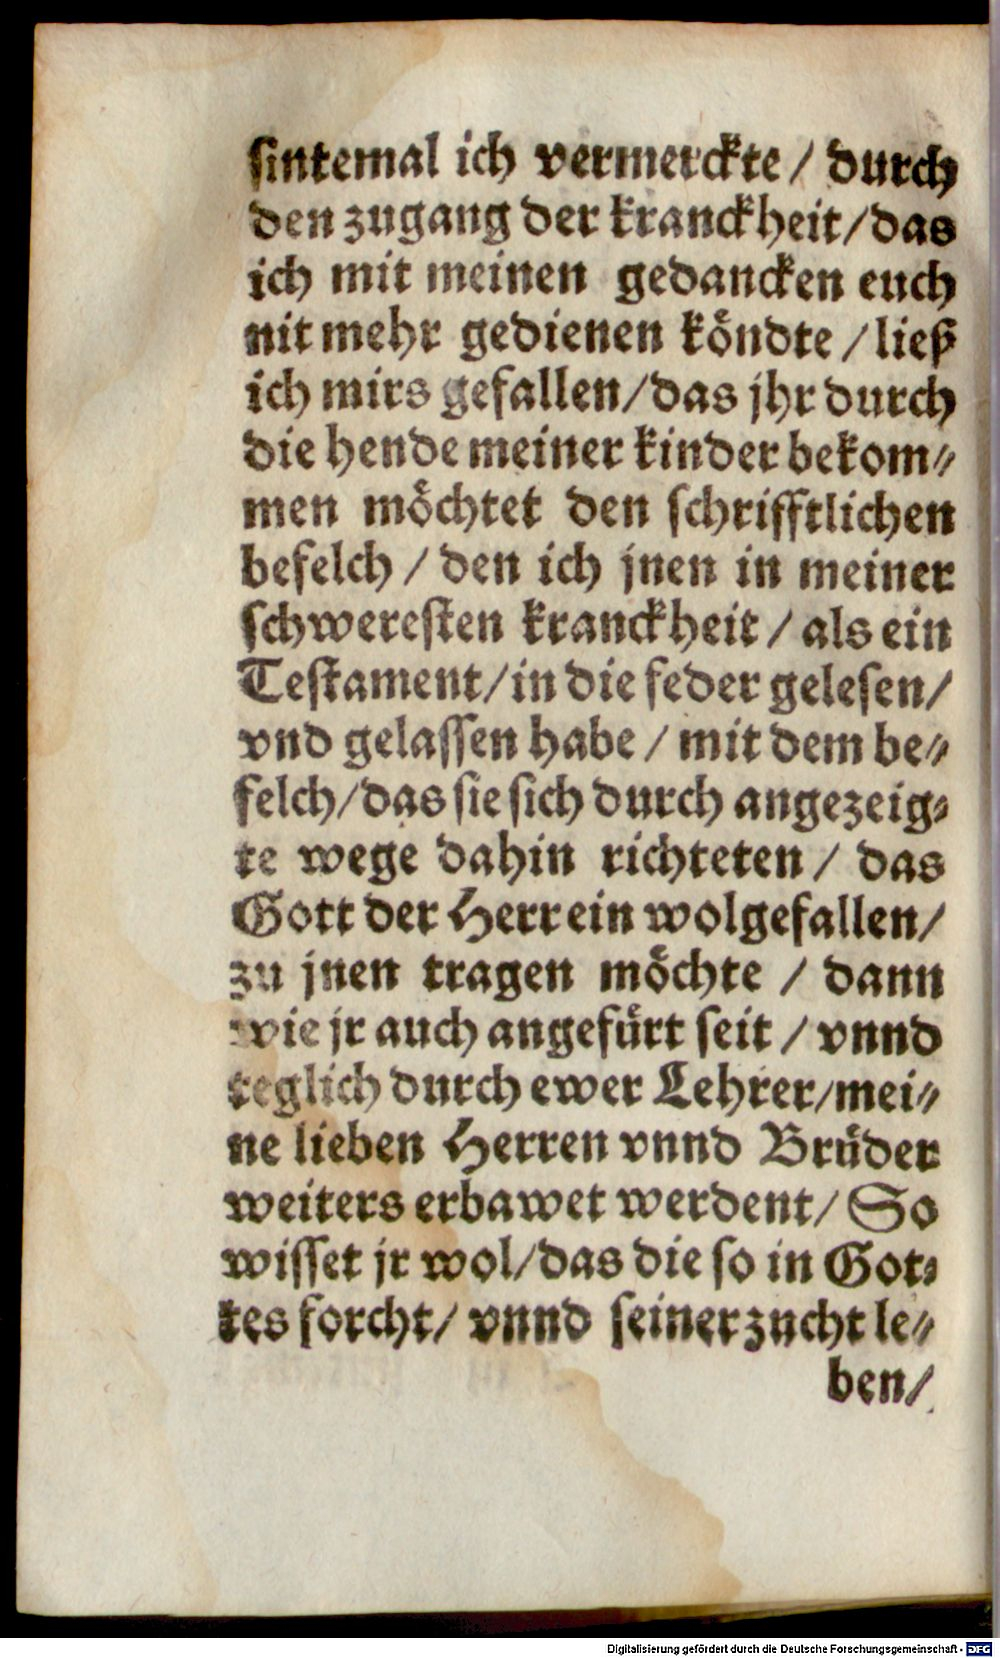 sintemal ich vermerckte / durch
den zugang der kranckheit / das
ich mit meinen gedancken euch
nit mehr gedienen köndte / ließ
ich mirs gefallen / das jhr durch
die hende meiner kinder bekom⸗
men möchtet den schrifftlichen
befelch / den ich jnen in meiner
schweresten kranckheit / als ein
Testament / in die feder gelesen /
vnd gelassen habe / mit dem be⸗
felch / das sie sich durch angezeig⸗
te wege dahin richteten / das
Gott der Herr ein wolgefallen /
zu jnen tragen möchte / dann
wie jr auch angefürt seit / vnnd
teglich durch ewer Lehrer / mei⸗
ne lieben Herren vnnd Brüder
weiters erbawet werdent / So
wisset jr wol / das die so in Got⸗
tes forcht / vnnd seiner zucht le⸗
ben /
Digitalisierung gefördert durch die Deutsche Forschungsgemeinschaft - DFG